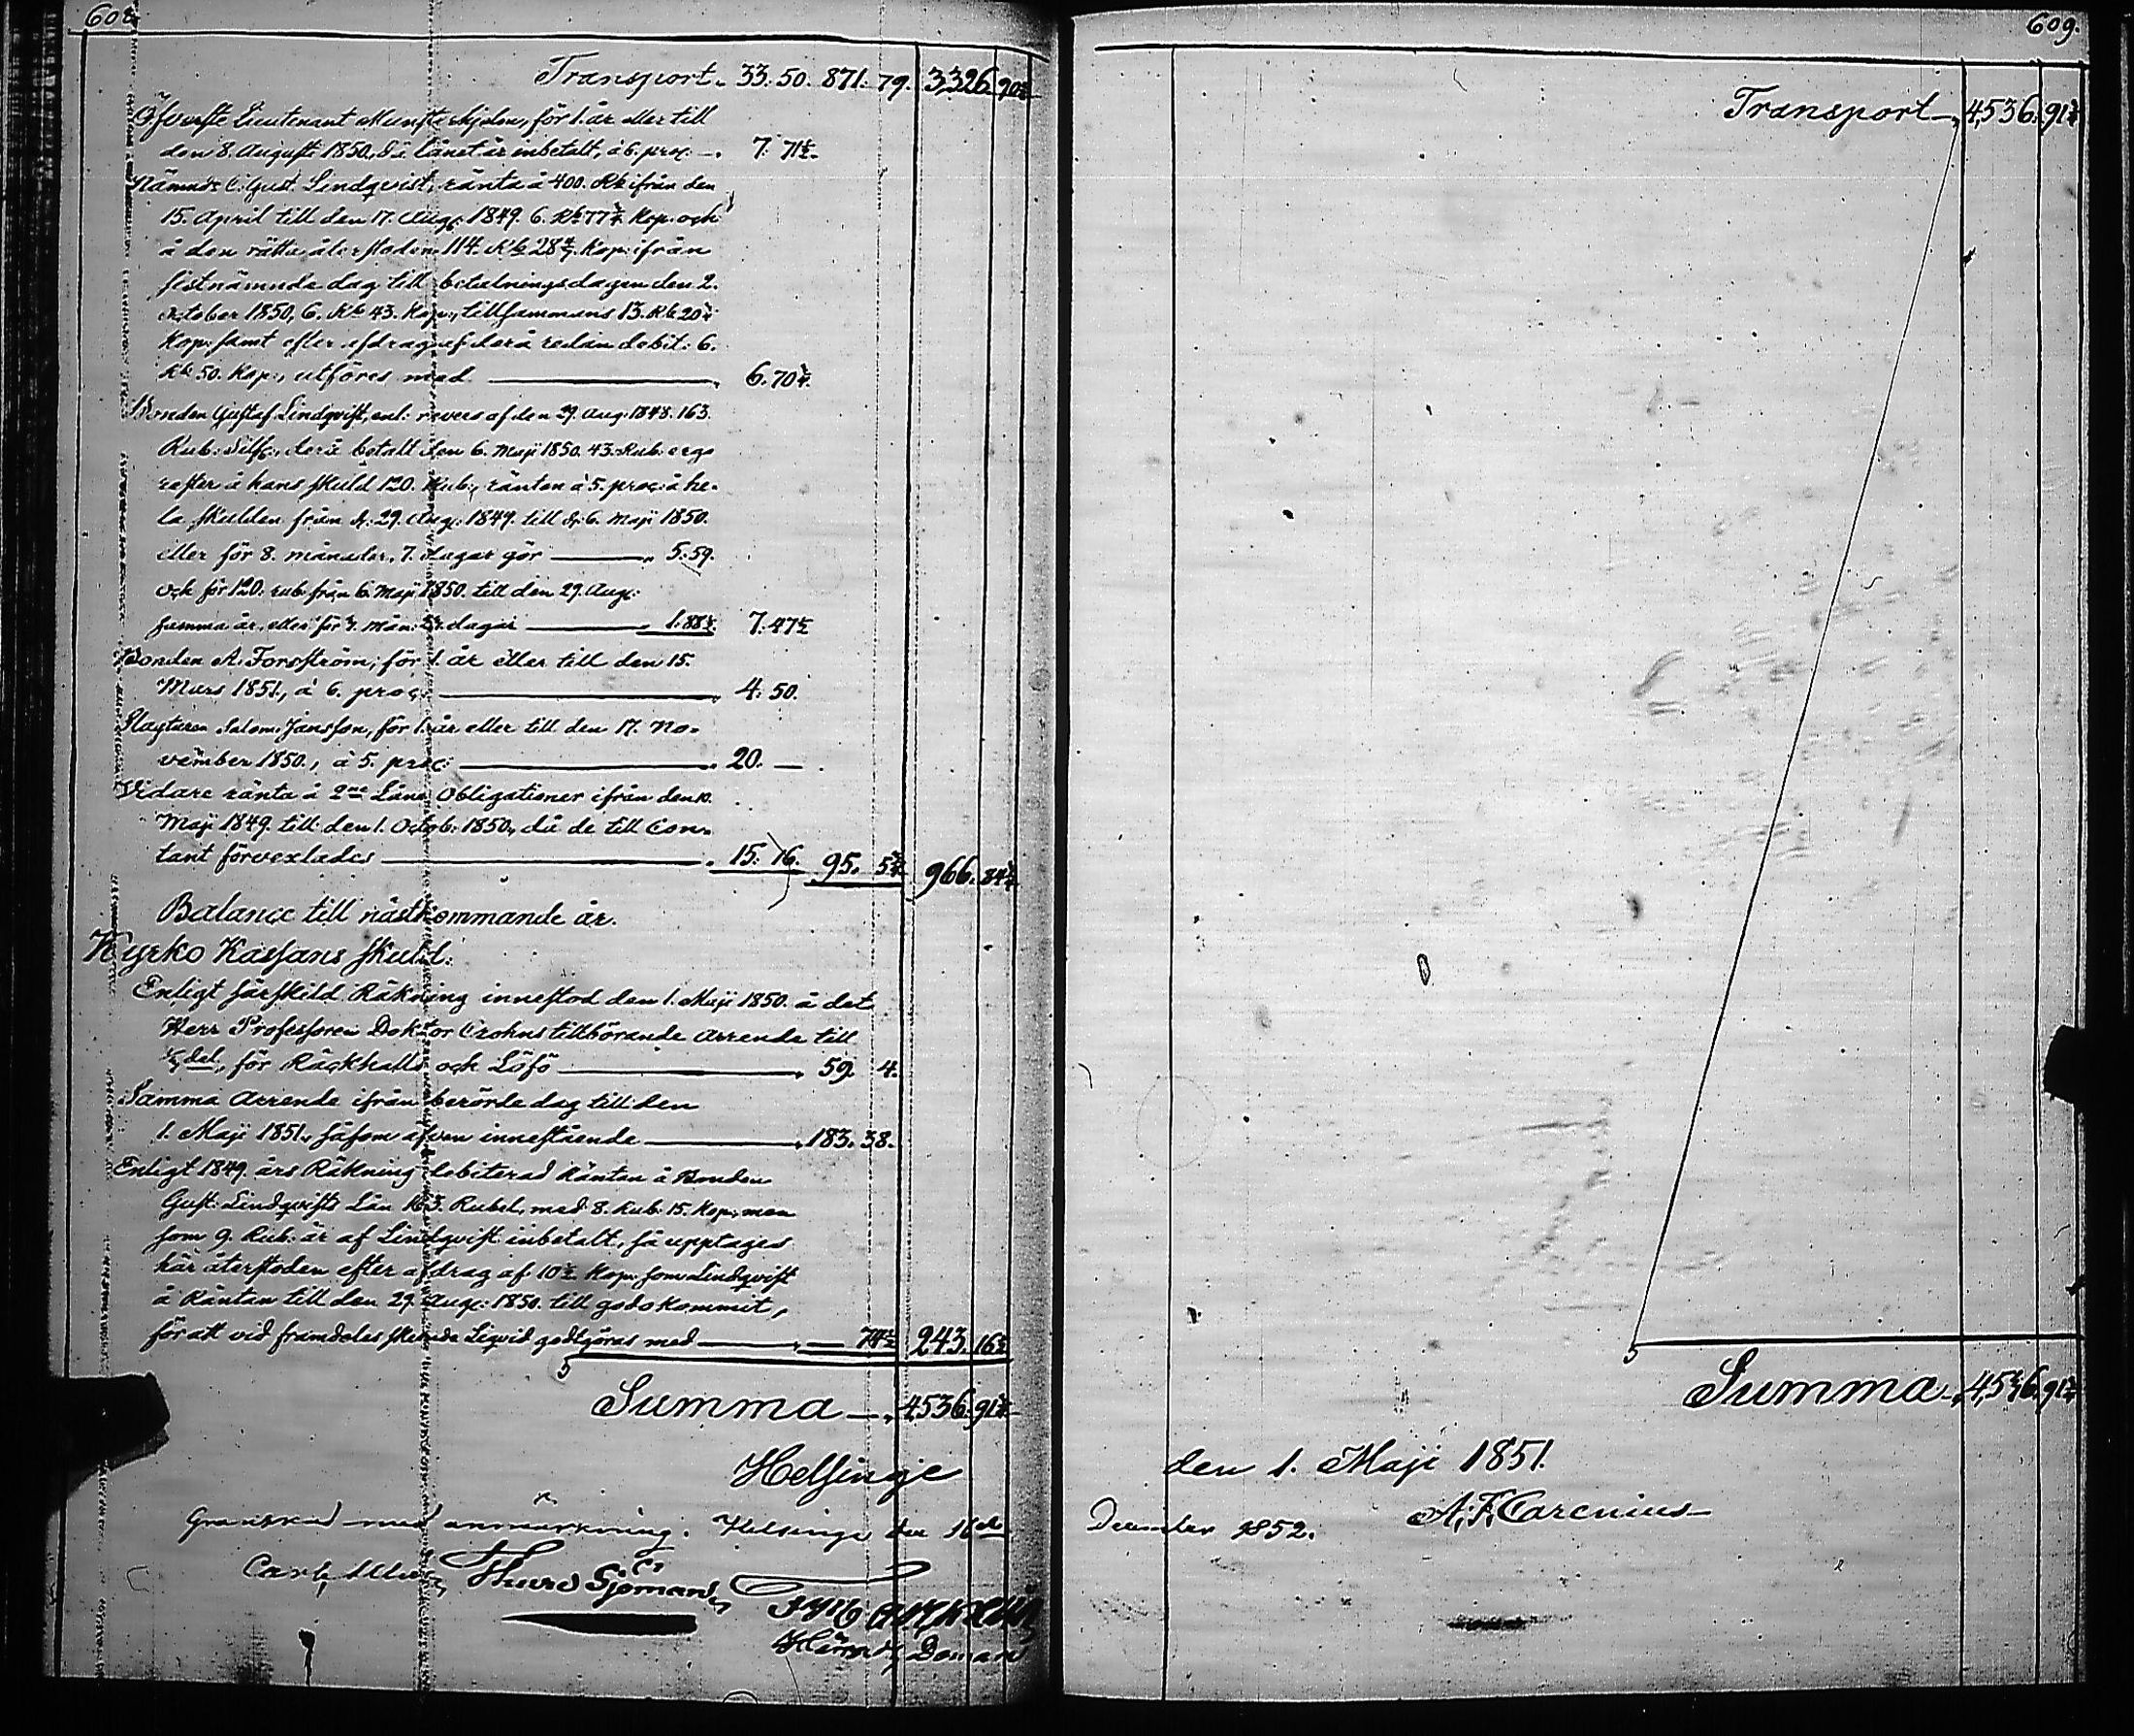 608.
Transport 33. 50. 871. 79. 3,326. 90½
Öfverste Lieutenant Munsterhjelm, för 1. år eller till
den 8. Augusti 1850, då lånet är inbetalt, à 6. proc. 7. 71½
Nämnde C. Gust. Lindqvist, ränta å 400. Rb ifrån den
15. April till den 17. Aug: 1849. 6. Rb 77¾ Kop. och
å den rätta återstoden 114. Rb 28 4/7 Kop: ifrån
sistnämnde dag till betalningsdagen den 2.
October 1850, 6. Rb 43. Kop:, tillsammans 13. Rb 20¾
Kop: samt efter afdrag af derå redan debit: 6.
Rb 50. Kop:, utföres med 6. 70¾
Bonden Gustaf Lindqvist, enl: revers af den 29. Aug: 1848. 163.
Rub: Silfr:, derå betalt den 6. Maji 1850. 43. Rub: ergo
rester å hans skuld 120. Rub:, räntan à 5. proc: å he-
la skulden från d: 29. Aug: 1849. till d: 6. Maji 1850.
eller för 8. månader, 7. dagar gör 5. 59.
och för 120. rub: från 6. Maji 1850. till den 29. Aug:
samma år, eller för 3. mån: 23. dagar 1. 88½ 7. 47½
Bonden A. Forsström, för 1. år eller till den 15.
Mars 1851, à 6. proc: 4. 50.
Slagtaren Salom: Jansson, för 1. år eller till den 17. No-
vember 1850, à 5. proc: 20. —
Vidare ränta å 2ne Låne Obligationer ifrån den 10.
Maji 1849. till den 1. Octob: 1850, då de till Con-
tant förvexlades 15. 16. 95. 5¾ 966. 84¾
Balance till nästkommande år.
Kyrko Kassans skuld:
Enligt särskild Räkning innestod den 1. Maji 1850. å det
Herr Professoren Doktor Crohns tillhörande Arrende till
½ del, för Räckhalls och Löfö 59. 4.
Samma Arrende ifrån berörde dag till den
1. Maji 1851, såsom äfven innestående 183. 38.
Enligt 1849. års Räkning debiterad Räntan å Bonden
Gust: Lindqvists Lån 163. Rubel, med 8. Rub: 15. Kop:, men
som 9. Rub: är af Lindqvist inbetalt, så upptages
här återstoden efter afdrag af 10½ Kop: som Lindqvist
å Räntan till den 29. Aug: 1850. till godo kommit,
för att vid framdeles skeende Liqvid godtgöras med — 74½ 243. 16½
Summa 4,536. 91¾
Helsinge
Granskad med anmärkning. Helsinge den 16de
Thure Sjöman
Doman
609.
Transport 4,536. 91¾
Summa 4,536. 91¾
den 1. Maji 1851.
A. F. Carenius
December 1852.